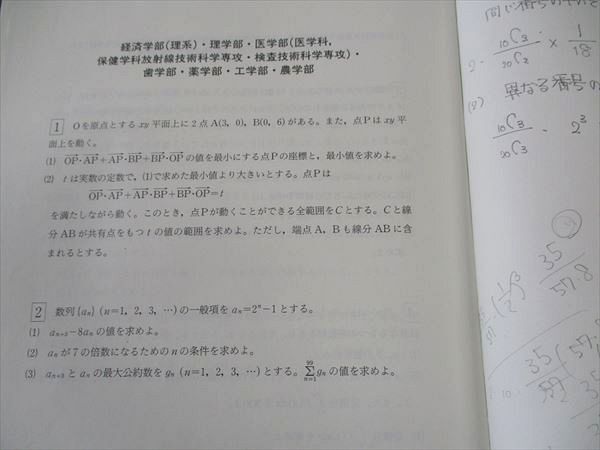 経済学部(理系)・理学部・医学部(医学科,
保健学科放射線技術科学専攻・検査技術科学専攻)・
歯学部・薬学部・工学部・農学部
1 Oを原点とする xy 平面上に2点 A(3, 0), B(0, 6) がある。また, 点Pは xy 平
面上を動く。
(1) OP・AP+AP・BP+BP・OP の値を最小にする点Pの座標と, 最小値を求めよ。
(2) t は実数の定数で, (1)で求めた最小値より大きいとする。点Pは
OP・AP+AP・BP+BP・OP=t
を満たしながら動く。このとき, 点Pが動くことができる全範囲をCとする。Cと線
分ABが共有点をもつ t の値の範囲を求めよ。ただし, 端点A, Bも線分ABに含
まれるとする。
2 数列{aₙ} (n=1, 2, 3, …) の一般項を aₙ=2ⁿ−1 とする。
(1) aₙ₊₃−8aₙ の値を求めよ。
(2) aₙ が7の倍数になるための n の条件を求めよ。
(3) aₙ₊₃ と aₙ の最大公約数を gₙ (n=1, 2, 3, …) とする。99Σn=1 gₙ の値を求めよ。
2. 10C3/20C2 × 1/18
(2) 異なる番号の
10C3/20C3 · 2³
35/57·8